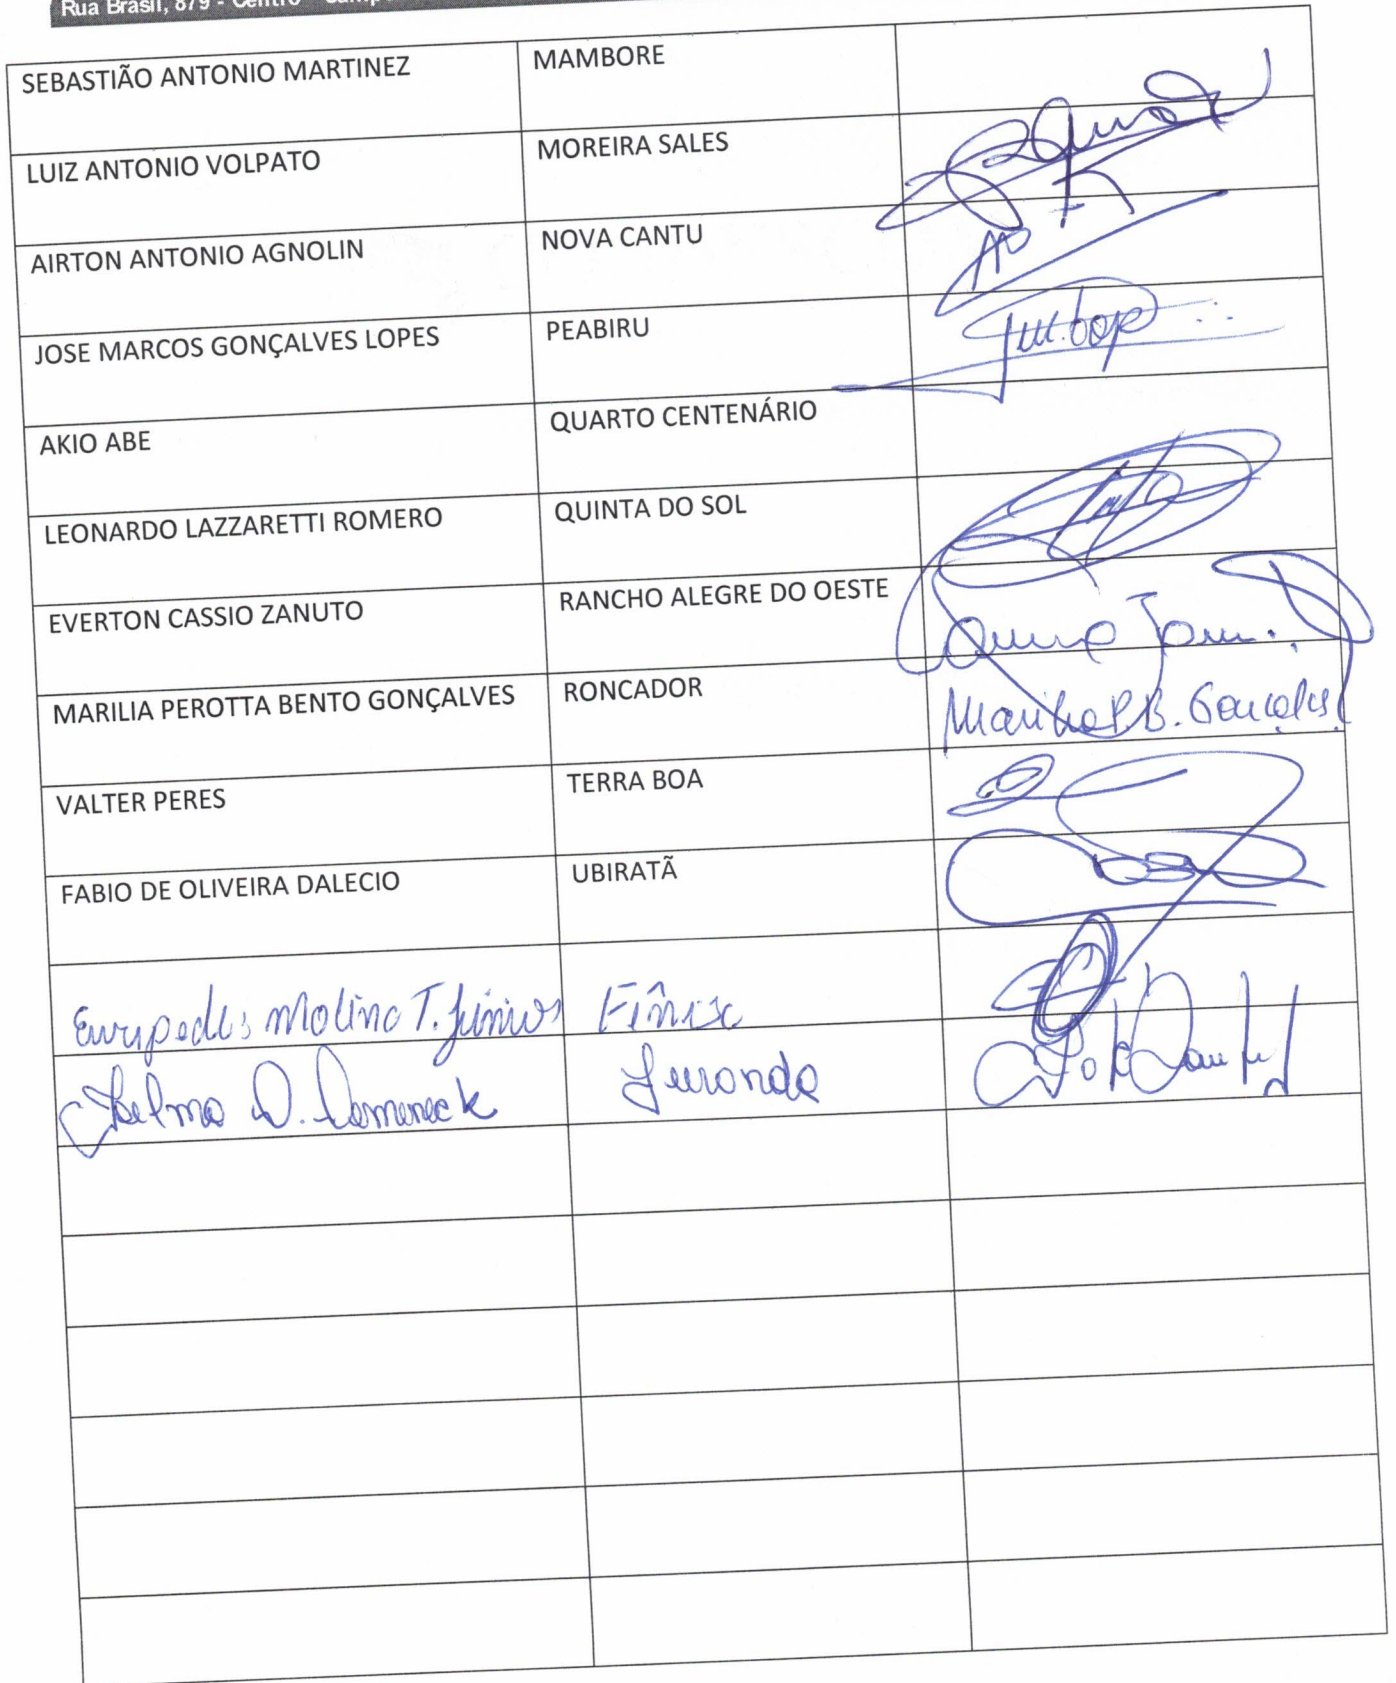 Rua Brasil, 879 - Centro -
SEBASTIÃO ANTONIO MARTINEZ MAMBORE
LUIZ ANTONIO VOLPATO MOREIRA SALES
AIRTON ANTONIO AGNOLIN NOVA CANTU
JOSE MARCOS GONÇALVES LOPES PEABIRU
AKIO ABE QUARTO CENTENÁRIO
LEONARDO LAZZARETTI ROMERO QUINTA DO SOL
EVERTON CASSIO ZANUTO RANCHO ALEGRE DO OESTE
MARILIA PEROTTA BENTO GONÇALVES RONCADOR Marilia P.B. Gonçalves
VALTER PERES TERRA BOA
FABIO DE OLIVEIRA DALECIO UBIRATÃ
Euripedes Molina T. Júnior Fênix
D.